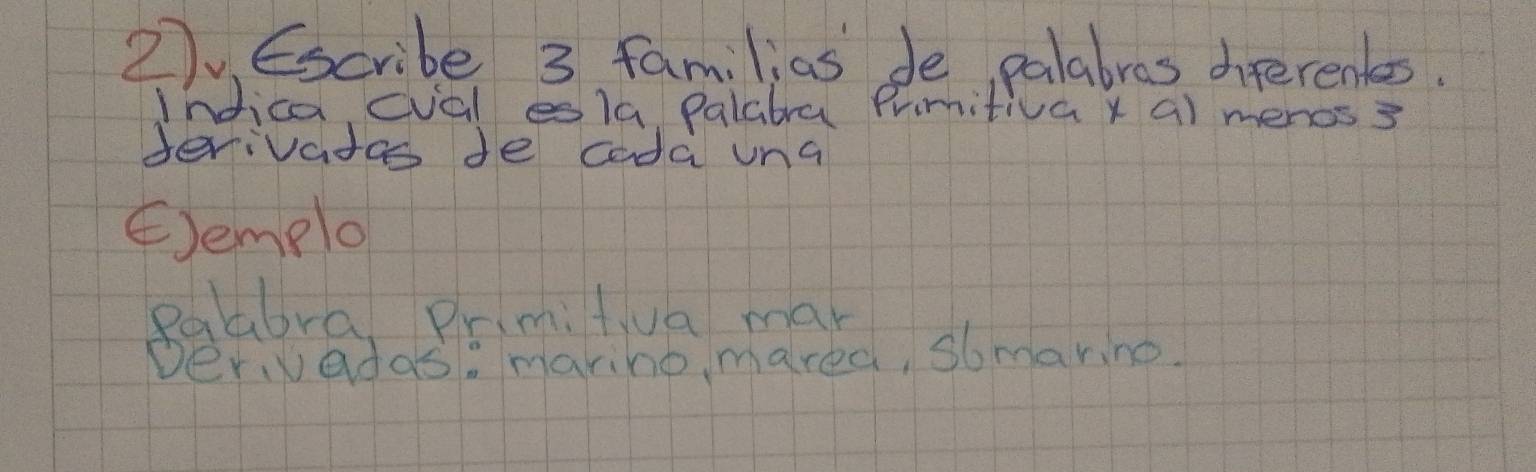 2) Escribe 3 familias de palabras diferentes.
Indica cuál es la Palabra Primitiva y al menos 3
derivadas de cada una
Ejemplo
Palabra Primitiva mar
Derivadas: marino, marea, sbmarino.